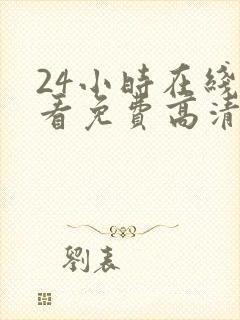 24小時在綫
看免費高清
劉表